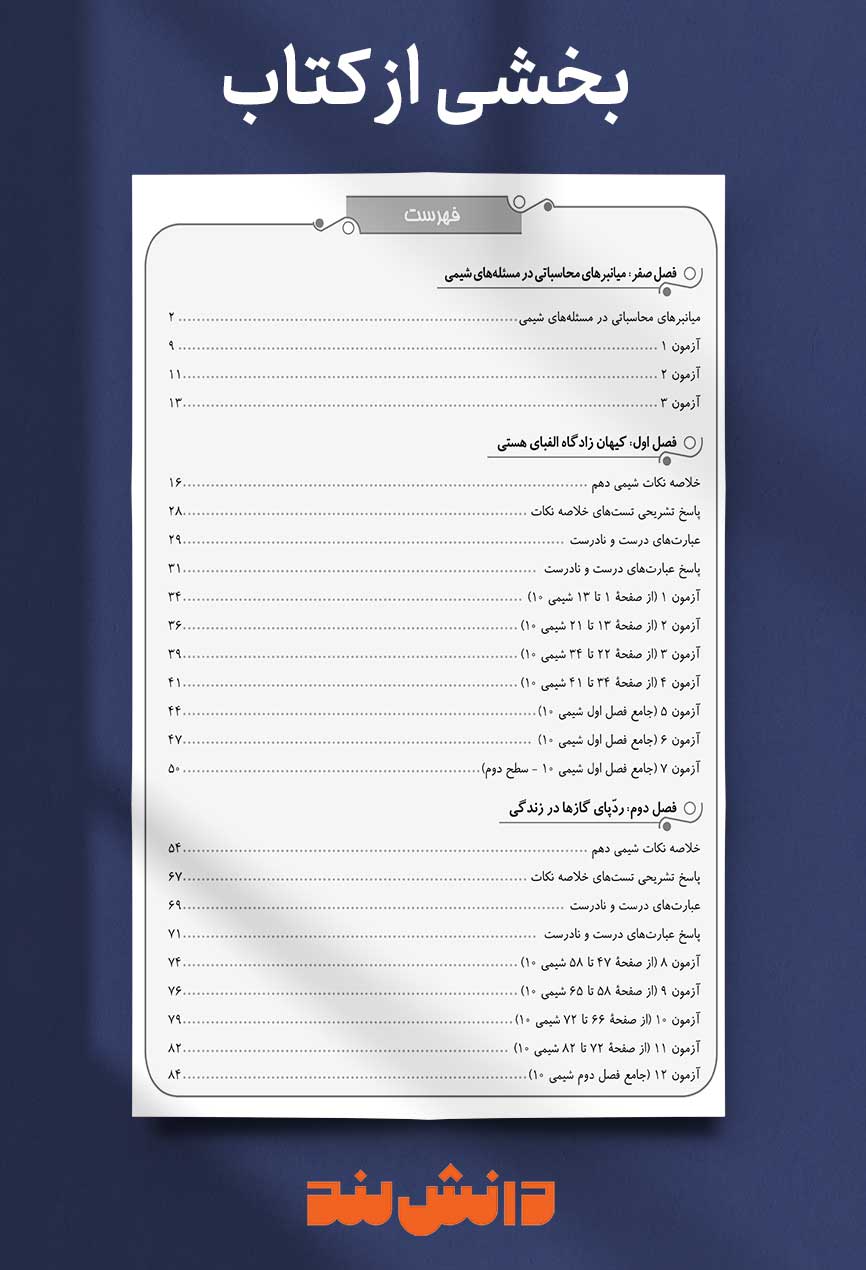 بخشی از کتاب
فهرست
فصل صفر: میانبرهای محاسباتی در مسئله‌های شیمی
میانبرهای محاسباتی در مسئله‌های شیمی ........ ۲
آزمون ۱ ........ ۹
آزمون ۲ ........ ۱۱
آزمون ۳ ........ ۱۳
فصل اول: کیهان زادگاه الفبای هستی
خلاصه نکات شیمی دهم ........ ۱۶
پاسخ تشریحی تست‌های خلاصه نکات ........ ۲۸
عبارت‌های درست و نادرست ........ ۲۹
پاسخ عبارت‌های درست و نادرست ........ ۳۱
آزمون ۱ (از صفحهٔ ۱ تا ۱۳ شیمی ۱۰) ........ ۳۴
آزمون ۲ (از صفحهٔ ۱۳ تا ۲۱ شیمی ۱۰) ........ ۳۶
آزمون ۳ (از صفحهٔ ۲۲ تا ۳۴ شیمی ۱۰) ........ ۳۹
آزمون ۴ (از صفحهٔ ۳۴ تا ۴۱ شیمی ۱۰) ........ ۴۱
آزمون ۵ (جامع فصل اول شیمی ۱۰) ........ ۴۴
آزمون ۶ (جامع فصل اول شیمی ۱۰) ........ ۴۷
آزمون ۷ (جامع فصل اول شیمی ۱۰ - سطح دوم) ........ ۵۰
فصل دوم: ردّپای گازها در زندگی
خلاصه نکات شیمی دهم ........ ۵۴
پاسخ تشریحی تست‌های خلاصه نکات ........ ۶۷
عبارت‌های درست و نادرست ........ ۶۹
پاسخ عبارت‌های درست و نادرست ........ ۷۱
آزمون ۸ (از صفحهٔ ۴۷ تا ۵۸ شیمی ۱۰) ........ ۷۴
آزمون ۹ (از صفحهٔ ۵۸ تا ۶۵ شیمی ۱۰) ........ ۷۶
آزمون ۱۰ (از صفحهٔ ۶۶ تا ۷۲ شیمی ۱۰) ........ ۷۹
آزمون ۱۱ (از صفحهٔ ۷۲ تا ۸۲ شیمی ۱۰) ........ ۸۲
آزمون ۱۲ (جامع فصل دوم شیمی ۱۰) ........ ۸۴
دانش‌لند